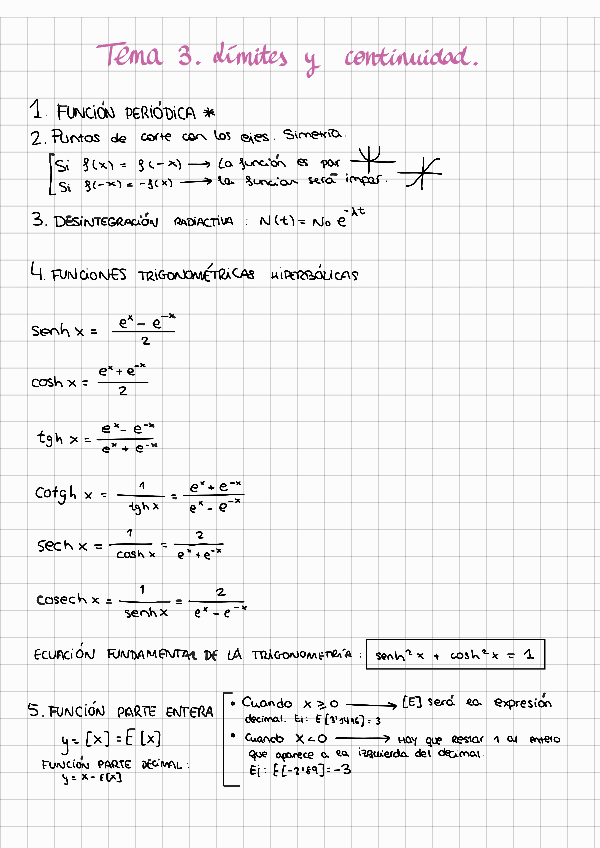 Tema 3. límites y continuidad.
1. FUNCIÓN PERIÓDICA *
2. Puntos de corte con los ejes. Simetría.
Si f(x) = f(-x) → La función es par
Si f(-x) = -f(x) → la función será impar.
3. DESINTEGRACIÓN RADIACTIVA : N(t) = N₀ e^-λt
4. FUNCIONES TRIGONOMÉTRICAS HIPERBÓLICAS
senh x = (e^x - e^-x) / 2
cosh x = (e^x + e^-x) / 2
tgh x = (e^x - e^-x) / (e^x + e^-x)
cotgh x = 1 / tgh x = (e^x + e^-x) / (e^x - e^-x)
sech x = 1 / cosh x = 2 / (e^x + e^-x)
cosech x = 1 / senh x = 2 / (e^x - e^-x)
ECUACIÓN FUNDAMENTAL DE LA TRIGONOMETRÍA : senh² x + cosh² x = 1
5. FUNCIÓN PARTE ENTERA
y = [x] = E[x]
FUNCIÓN PARTE DECIMAL :
y = x - E[x]
• Cuando x ≥ 0 → [E] será la expresión
decimal. Ej: E[3'1416] = 3
• Cuando x < 0 → Hay que restar 1 al entero
que aparece a la izquierda del decimal.
Ej: E[-2'89] = -3